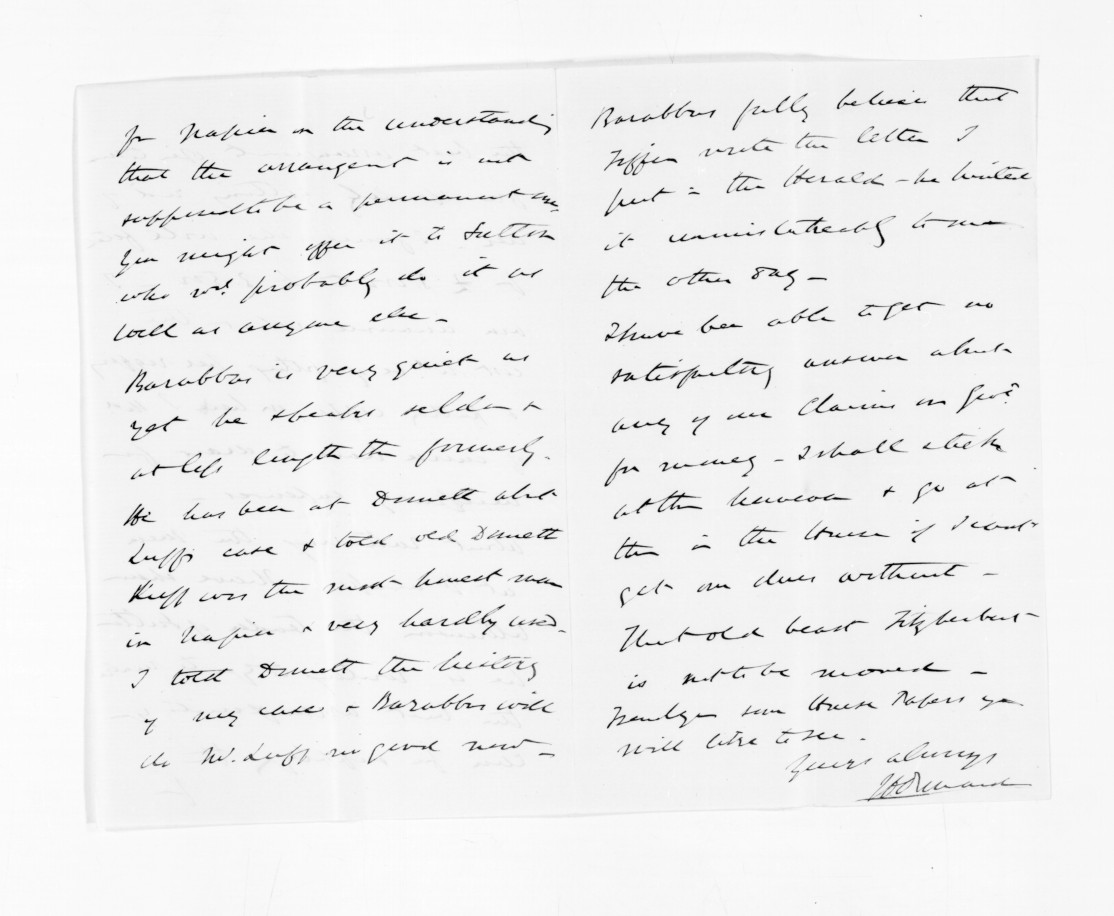 for Napier on the understanding
that the arrangent is not
supposed to be a permanent one.
You might offer it to Sutton
who wd. probably do it as
well as anyone else -
Barabbas is very quiet as
yet he speaks seldom &
at less length than formerly.
He has been at Domett abt
Luff's case & told old Domett
Luff was the most honest man
in Napier & very hardly used.
I told Domett the history
of my case & Barabbas will
do Mr. Luff no good now -
Barabbas fully believes that
Tiffen wrote the letter I
put in the Herald - he hinted
it unmistakeably to me
the other day -
I have been able to get no
satisfactory answer about
any of our claims on Govt
for money - I shall stick
at them however & go at
them in the House if I cant
get our dues without -
That old beast Fitzherbert
is not to be moved -
I send you some House Papers you
will like to see.
Yours always
JD Ormond